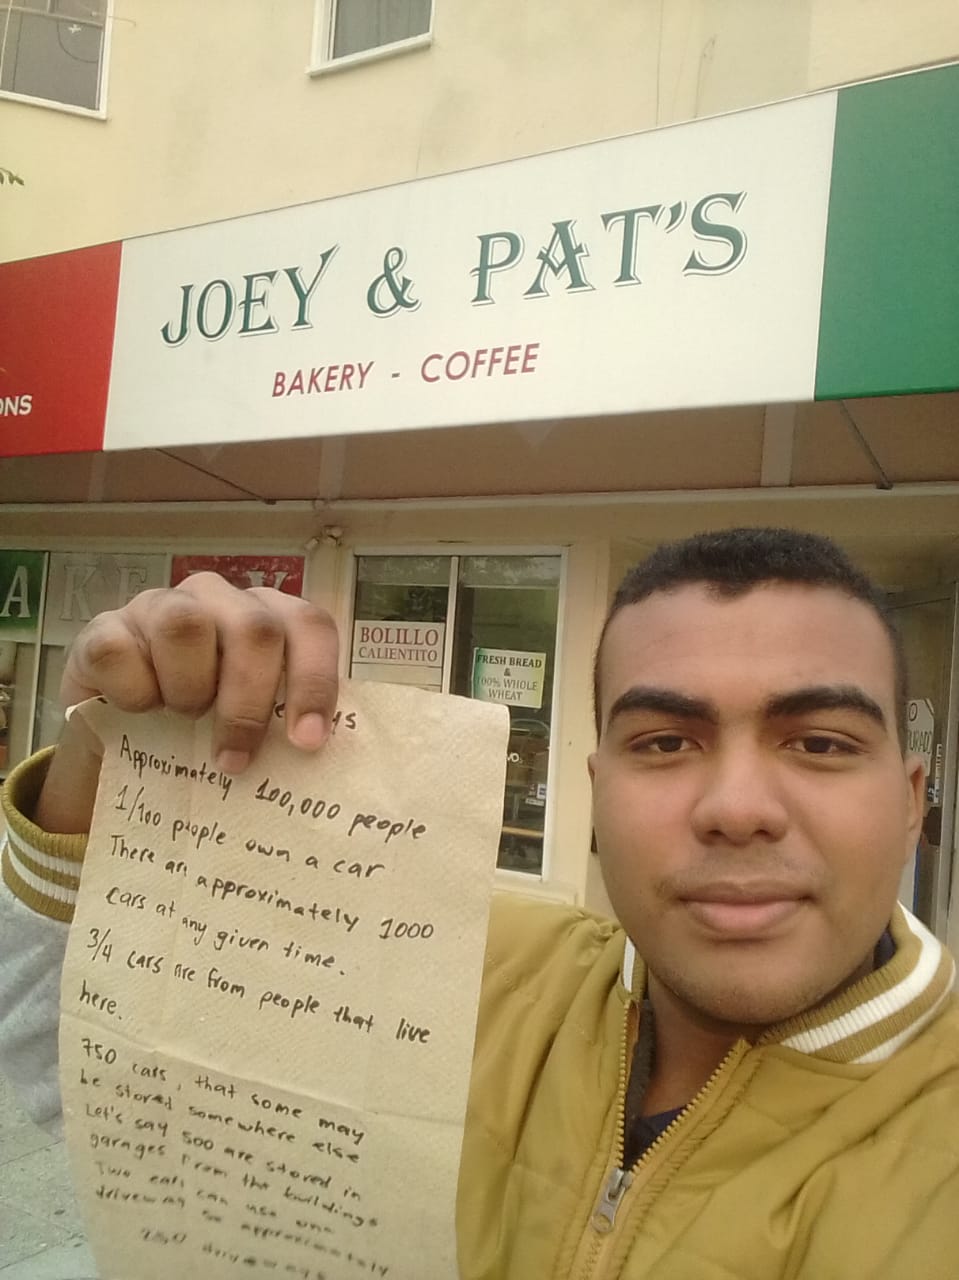 JOEY & PAT'S
BAKERY - COFFEE
ONS
AKE Y
BOLILLO
CALIENTITO
FRESH BREAD
&
100% WHOLE
WHEAT
Approximately 100,000 people
1/100 people own a car
There are approximately 1000
cars at any given time.
3/4 cars are from people that live
here.
750 cars, that some may
be stored somewhere else
Let's say 500 are stored in
garages from the buildings
Two cars can use one
driveway so approximately
250 driveways